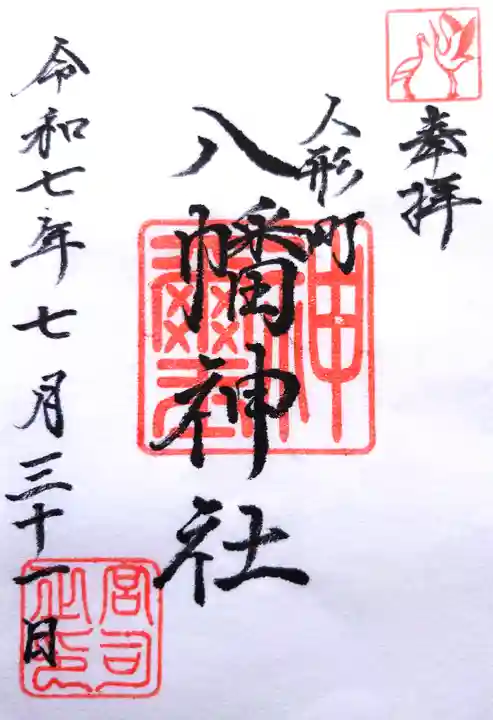 奉拝
人形町
八幡神社
令和七年七月三十一日
宮司之印